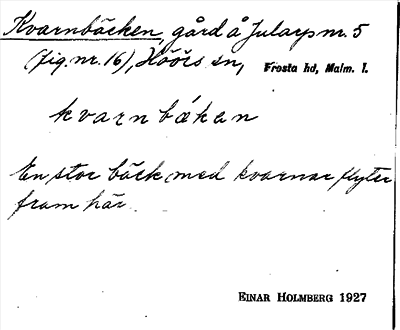 Kvarnbäcken, gård å Jularp nr. 5
(fig. nr. 16), Höörs sn, Frosta hd, Malm. l.
kvarnbákan
En stor bäck med kvarnar flyter
fram här.
EINAR HOLMBERG 1927